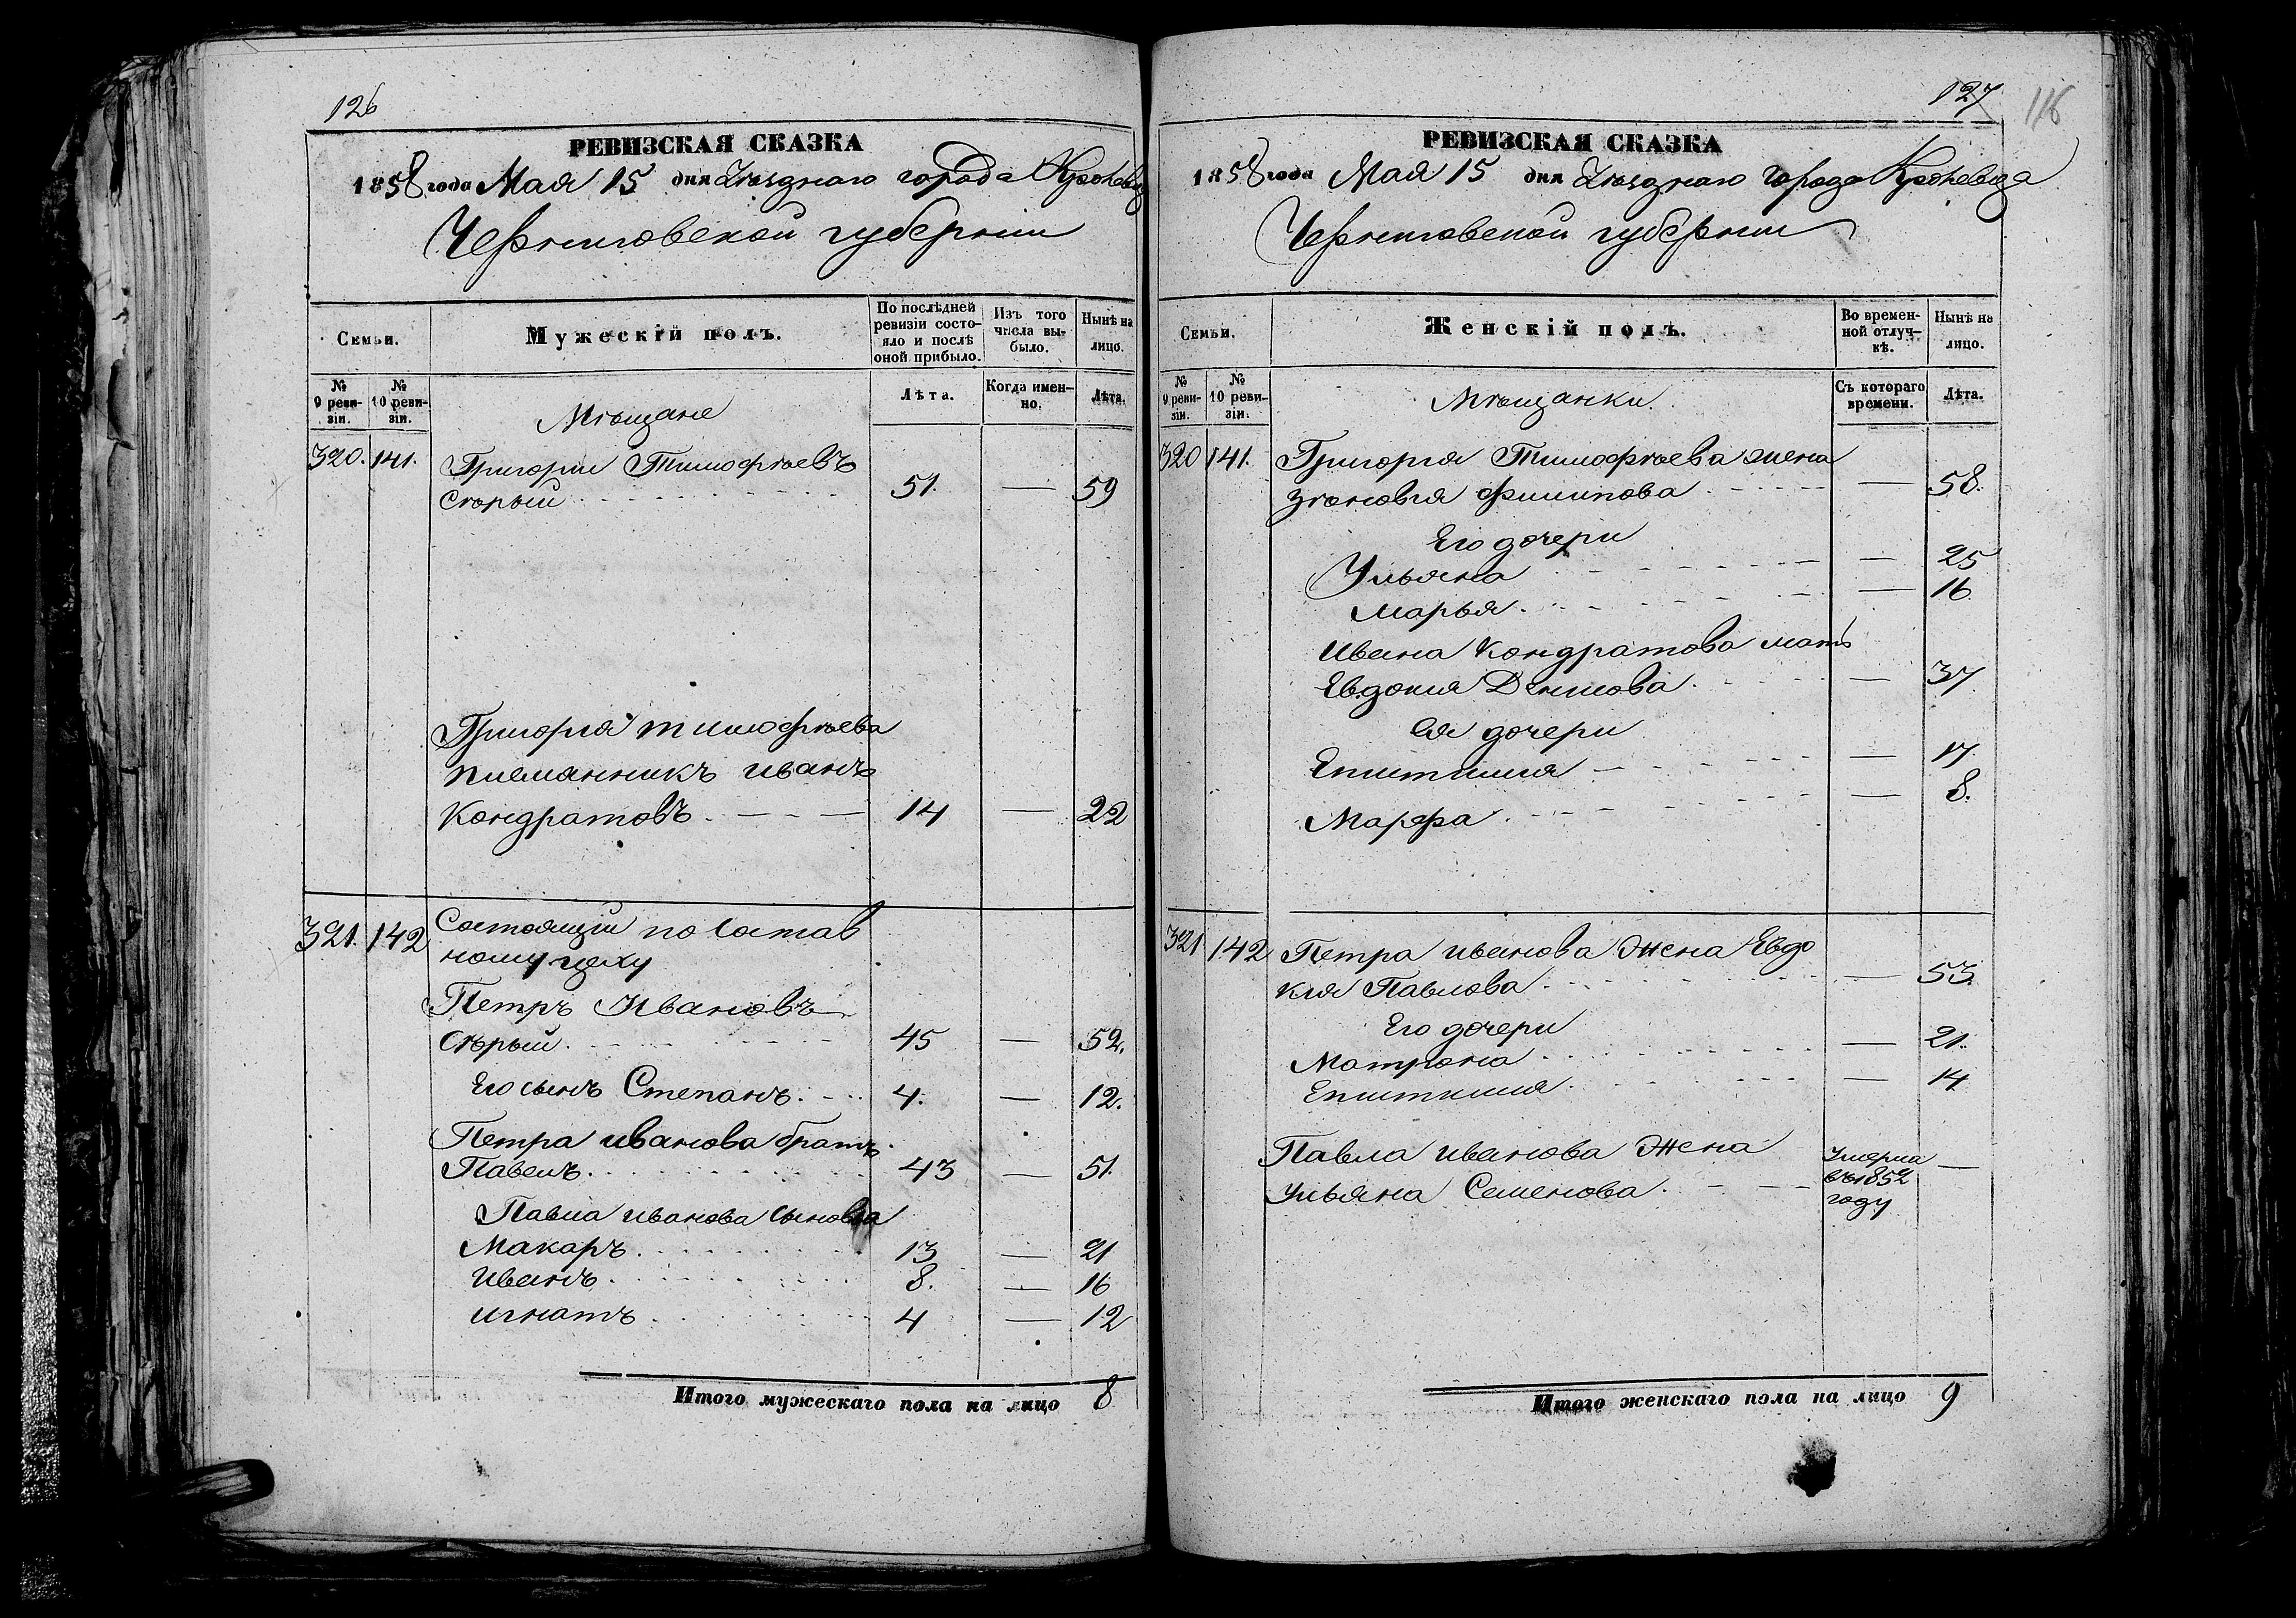 126
РЕВИЗСКАЯ СКАЗКА
1858 года Мая 15 дня Уѣзднаго города Кролевца
Черниговской губерніи
Семьи.
Мужескій полъ.
По послѣдней ревизіи состо-
яло и послѣ оной прибыло.
Изъ того числа вы-
было.
Нынѣ на лицо.
№ 9 реви-
зіи.
№ 10 реви-
зіи.
Мѣщане
Лѣта.
Когда имен-
но.
Лѣта.
320. 141. Григорій Тимофѣевъ
Сѣрый 51. — 59
Григорія Тимофѣева
племянникъ Иванъ
Кондратовъ 14 — 22
321. 142 Состоящій по состав
ному цеху
Петръ Ивановъ
Сѣрый. 45 — 52.
Его сынъ Степанъ. 4. — 12.
Петра Иванова братъ
Павелъ. 43 — 51.
Павла Иванова сыновья
Макаръ. 13 — 21
Иванъ. 8. — 16
Игнатъ. 4 — 12
Итого мужескаго пола на лицо 8
127
116
РЕВИЗСКАЯ СКАЗКА
1858 года Мая 15 дня Уѣзднаго города Кролевца
Черниговской губерніи
Семьи.
Женскій полъ.
Во времен-
ной отлуч-
кѣ.
Нынѣ на лицо.
№ 9 реви-
зіи.
№ 10 реви-
зіи.
Мѣщанки.
Съ котораго времени.
Лѣта.
320 141. Григорія Тимофѣева жена
Зѣновія Филипова — 58.
Его дочери
Ульяна — 25
Марья. — 16
Ивана Кондратова мать
Евдокія Денисова. — 37
Ея дочери
Епистимія — 17.
Марфа. — 8.
321 142 Петра Иванова жена Евдо
кія Павлова. — 53.
Его дочери
Матрона — 21.
Епистимія. — 14
Павла Иванова жена
Ульяна Семенова. Умерла въ 1852 году —
Итого женскаго пола на лицо 9